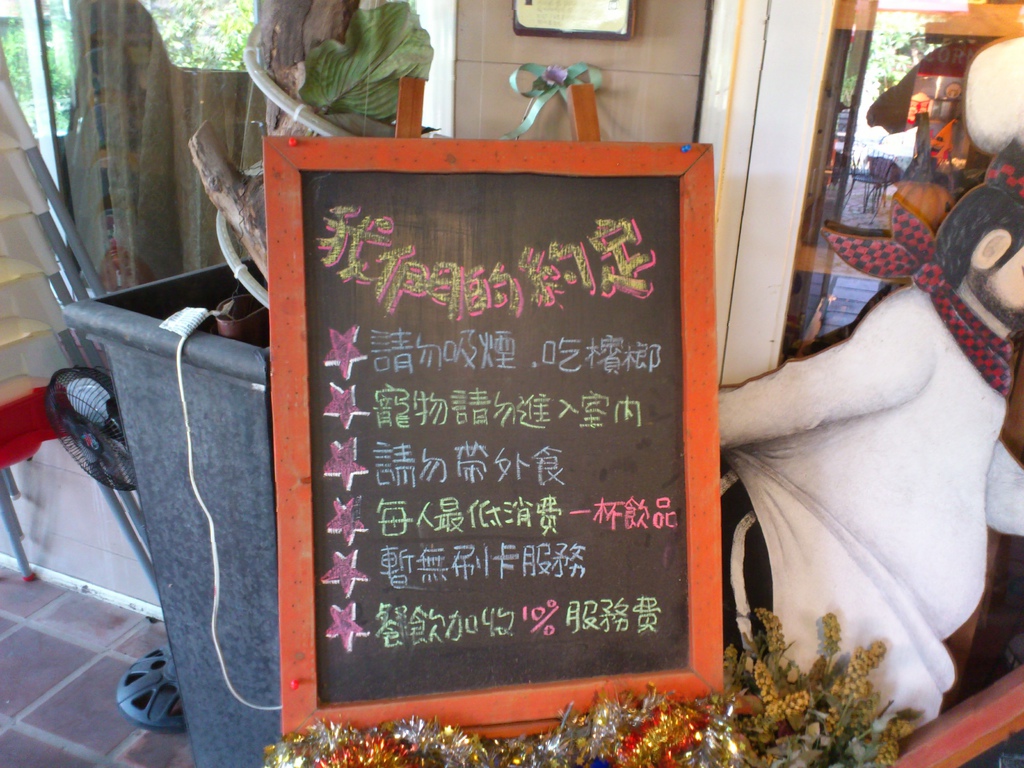 我們的約定
請勿吸煙.吃檳榔
寵物請勿進入室內
請勿帶外食
每人最低消費一杯飲品
暫無刷卡服務
餐飲加收10%服務費